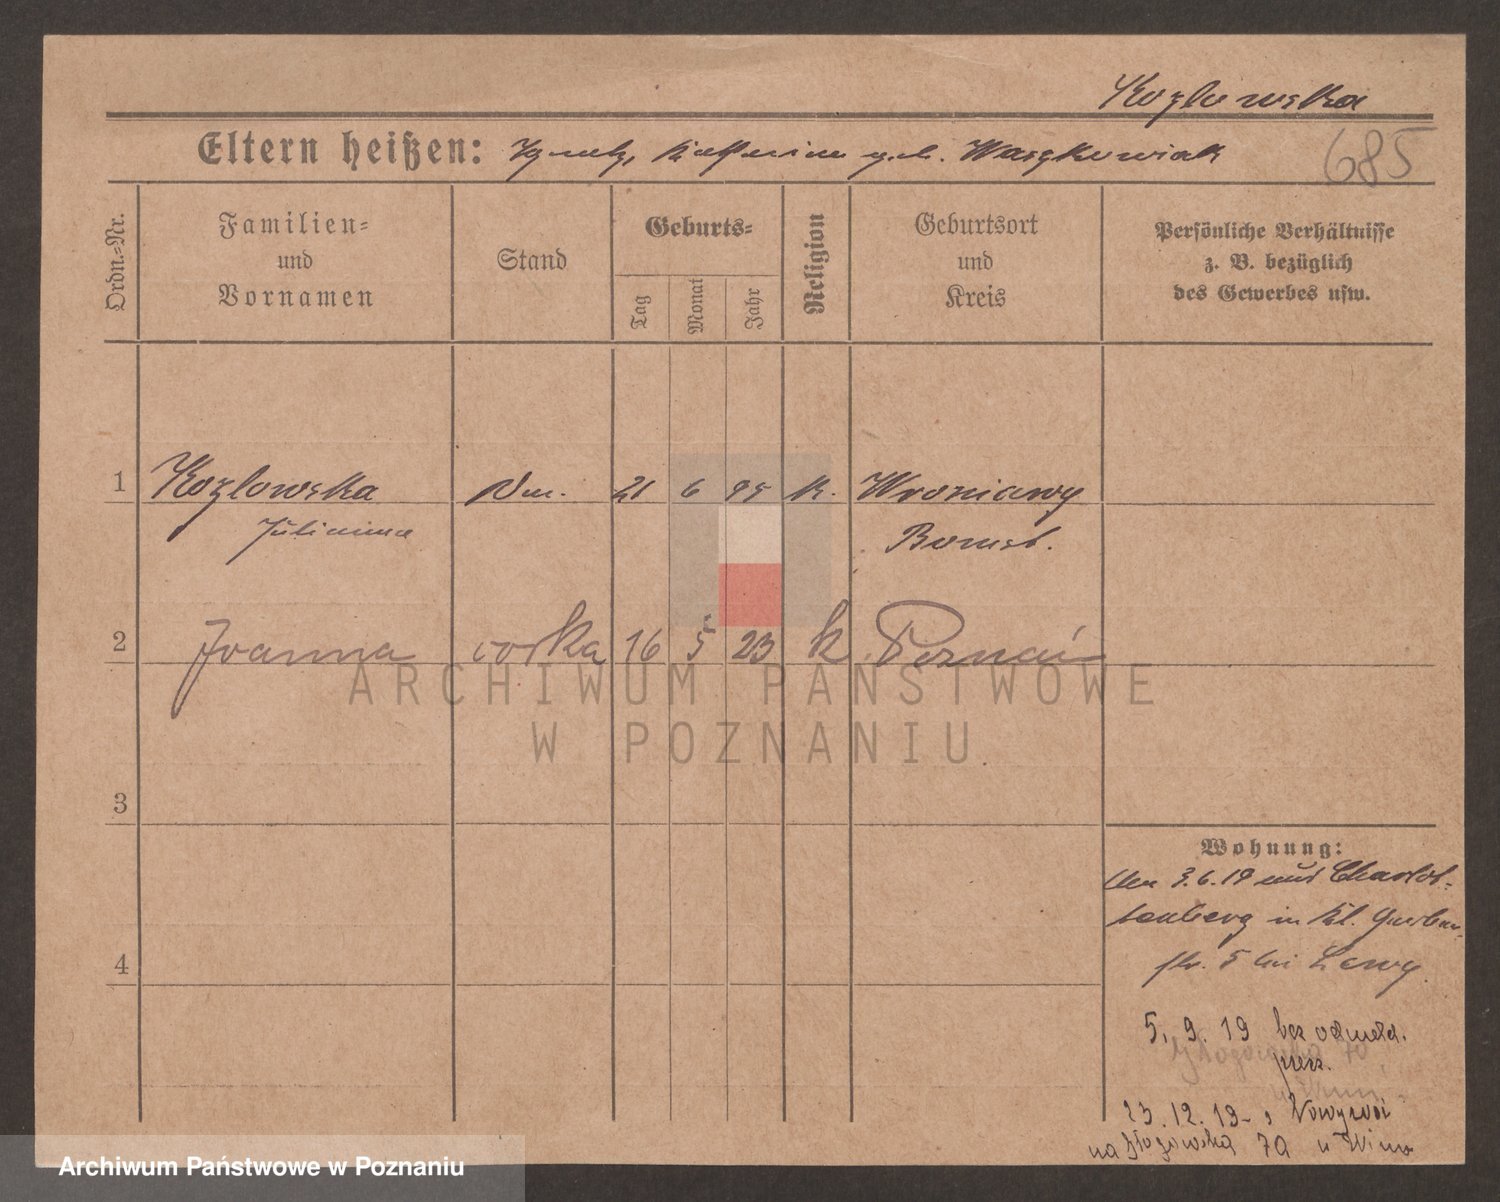 Kozlowska
Eltern heißen: Ignatz, Katharina geb. Waszkowiak
685
Ordn.-Nr.
Familien-
und
Vornamen
Stand
Geburts-
Tag
Monat
Jahr
Religion
Geburtsort
und
Kreis
Persönliche Verhältnisse
z. B. bezüglich
des Gewerbes usw.
1 Kozlowska 21 6 95 K. Wroniawy
Julianna Bomst.
2 Joanna corka 16 5 23 k Poznań
ARCHIWUM PAŃSTWOWE
W POZNANIU
3
Wohnung:
3.6.19 aus Charlot-
tenberg in Kl. Gerber-
4
str. 5 bei Lewy
5. 9. 19 bez odmeld.
Głogowska 70
przez.
23.12.19 - z
na Głogowska 70 u
Archiwum Państwowe w Poznaniu